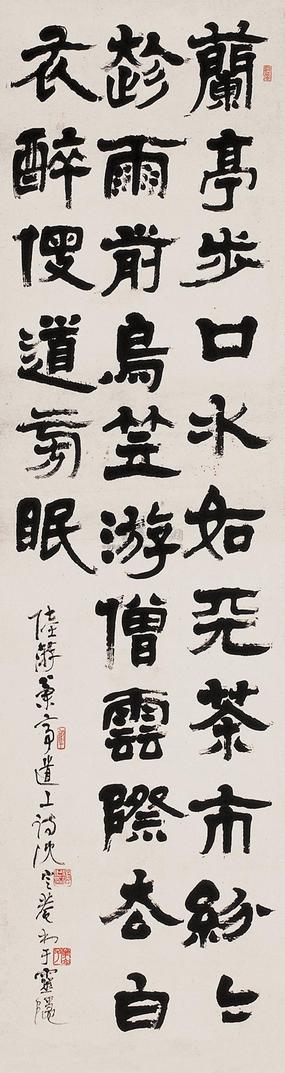 蘭亭步口水如天茶市紛〻
趁雨前烏笠游僧雲際去白
衣醉傁道旁眠
陸游蘭亭道上詩沈定菴書于靈隱